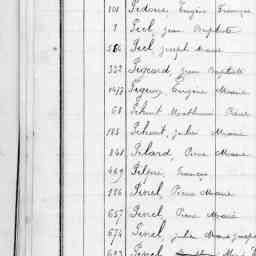 101 Pedoue, Eugène François
7 Peel, Jean Baptiste
586 Peel, Joseph Marie
332 Pegeard, Jean Baptiste
Pegeau, Eugène Marie
68 Pehuet Mathurin Pierre
185 Pehuet, Julien Marie
848 Pelard, Pierre Marie
469 François
126 Penel, Pierre Marie
657 Penel, Pierre Marie
674 Penel, Julien Marie Joseph
693 Penel